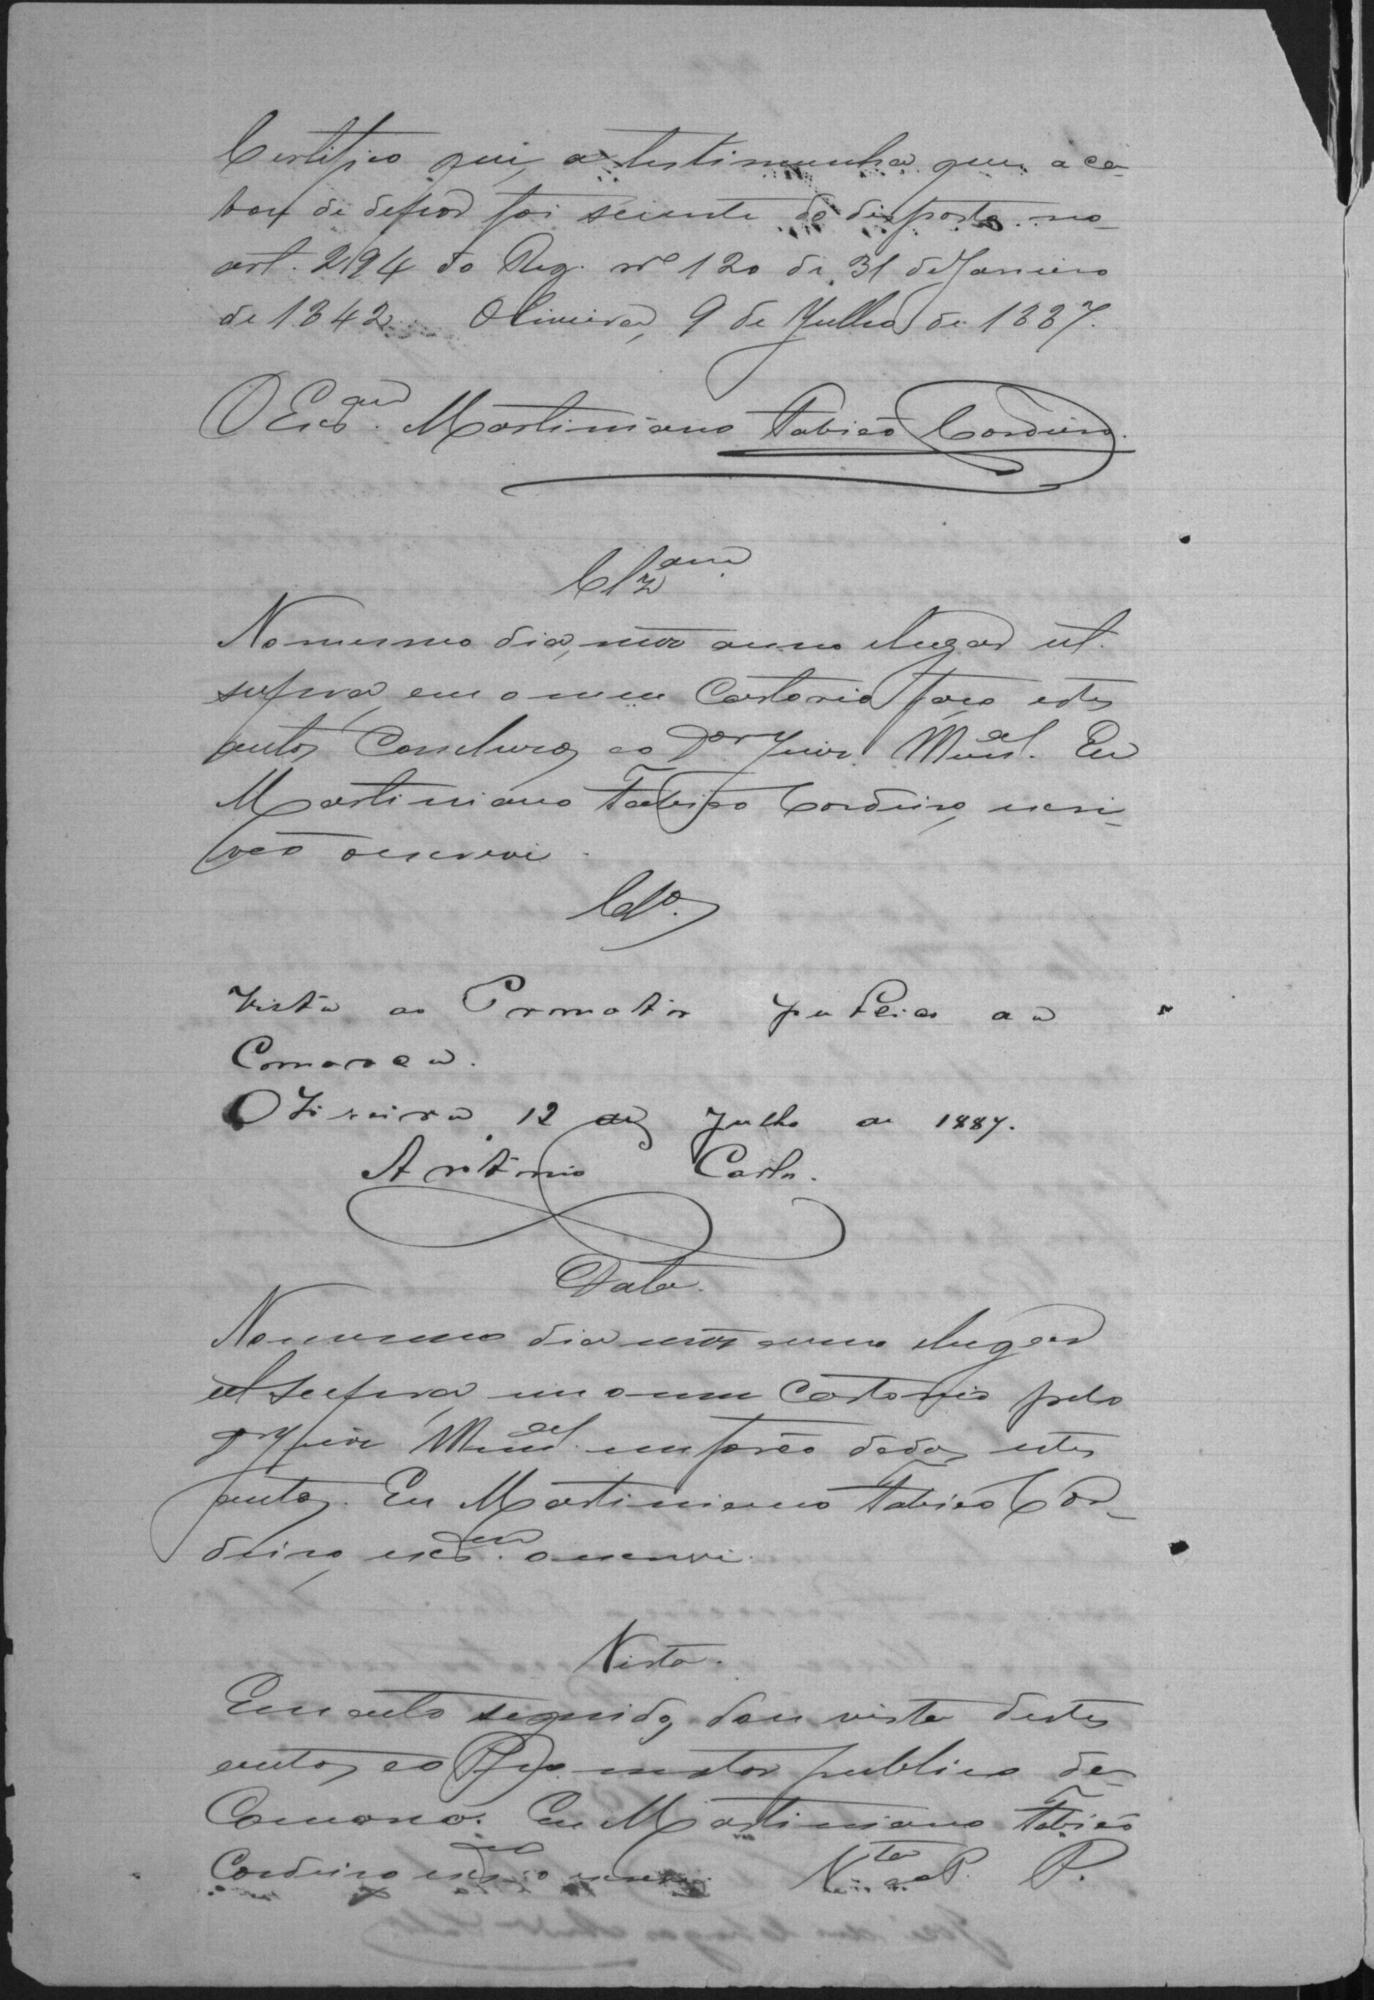 Certifico que, a testimunha que aca-
bou de depor foi sciente do disposto no
art. 294 do Reg. nº 120 de 31 de Janeiro
de 1842. Oliveira, 9 de Julho de 1887.
O Escam. Martiniano Fabião Cordeiro.
Clzam.
No mesmo dia, mes anno e lugar ut
supra, em o meu Cartorio faço estes
autos Conclusos ao Dor Juiz Munal. Eu
Martiniano Fabião Cordeiro, escri-
vão o escrevi.
Clos.
Vista ao Promotor publico da
Comarca.
Oliveira, 12 de Julho de 1887.
Antonio Carlos.
Data.
No mesmo dia mes anno e lugar
ut supra, em o meu Cartorio pelo
Dr Juiz Munal. me forão dados estes
autos. Eu Martiniano Fabião Cor-
deiro, escam. o escrevi.
Vista.
Em acto seguido, dou vista destes
autos ao Promotor publico da
Comarca. Eu Martiniano Fabião
Cordeiro escam o escrevi. Vta ao P. P.